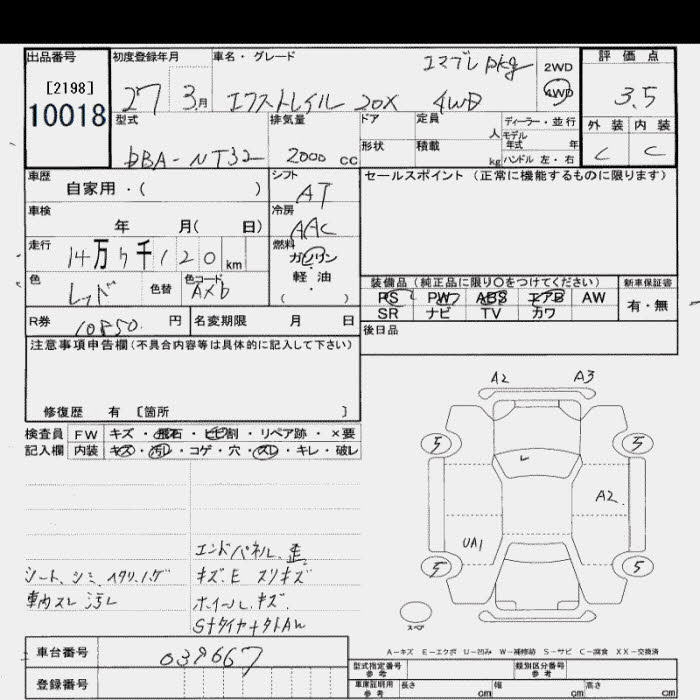 出品番号 初度登録年月 車名・グレード エマブレ pkg 2WD 評価点
[2198] 27 3月 エクストレイル 20X 4WD 4WD 3.5
10018 型式 排気量 ドア 定員 人 ディーラー・並行 外装 内装
DBA-NT32 2000 cc 形状 積載 kg モデル年式 年 C C
ハンドル 左・右
車歴 自家用・( ) シフト AT セールスポイント(正常に機能するものに限ります)
車検 年 月( 日) 冷房 AAC
走行 14万5千120km 燃料 ガソリン
軽・油
( )
色 レッド 色替 色コード AXb 装備品(純正品に限り○をつけてください) 新車保証書
PS PW ABS エアB AW 有・無
SR ナビ TV カワ
R券 10850. 円 名変期限 月 日 後日品
注意事項申告欄(不具合内容等は具体的に記入して下さい)
修復歴 有 [箇所 ]
検査員 FW キズ・飛石・ヒビ割・リペア跡・×要
記入欄 内装 キズ・汚レ・コゲ・穴・スレ・キレ・破レ
A2 A3
5 5
A2
UA1
5 5
スペア
エンドパネル 歪
シート、シミ、ヘタリ、ハゲ キズ.E スリキズ
車内スレ 汚レ ホイール.キズ.
SナタイヤナタトAW
A-キズ E-エクボ U-凹み W-補修跡 S-サビ C-腐食 XX-交換済
車台番号 039667
登録番号
型式指定番号 参考 類別区分番号 参考
車庫証明用 参考 長さ cm 幅 cm 高さ cm